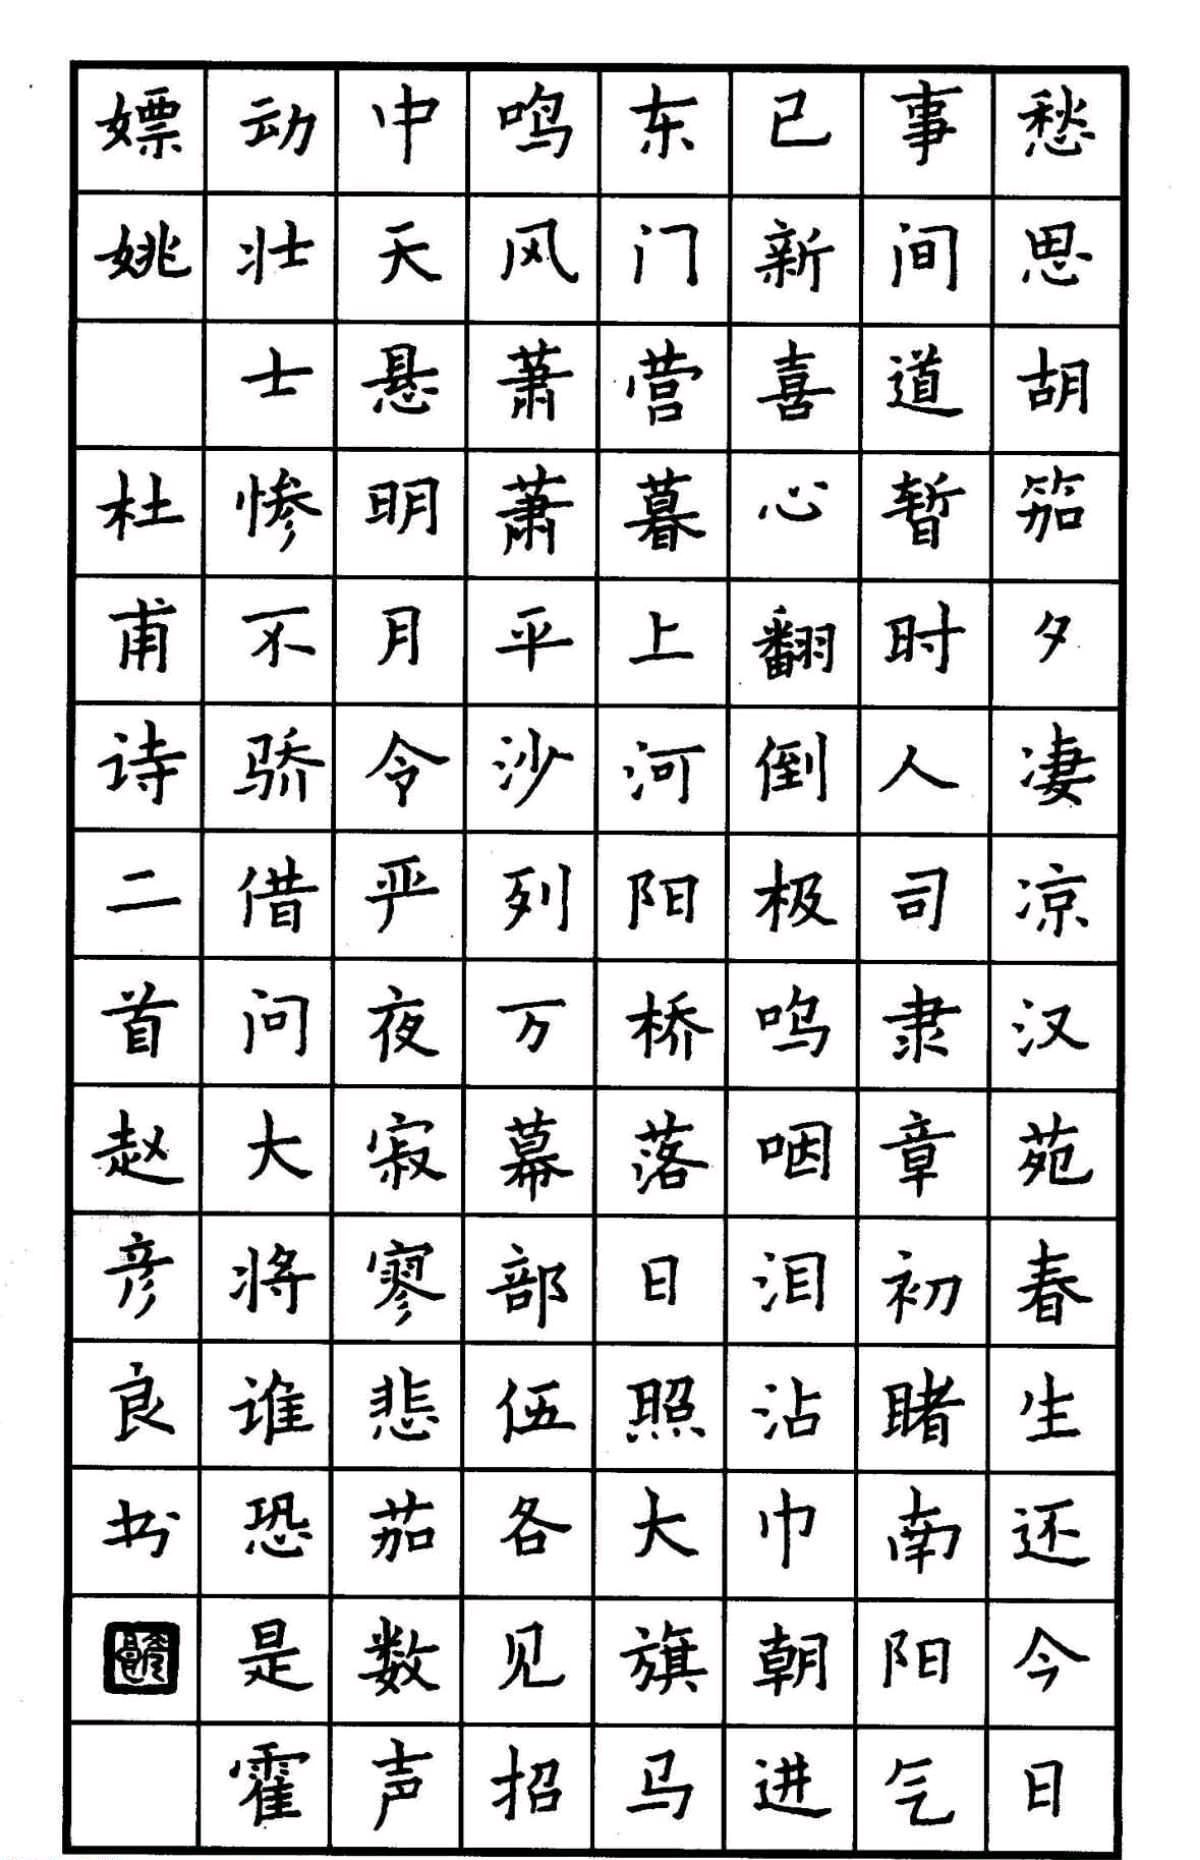 愁思胡笳夕凄凉汉苑春生还今日
事间道暂时人司隶章初睹南阳气
已新喜心翻倒极呜咽泪沾巾朝进
东门营暮上河阳桥落日照大旗马
鸣风萧萧平沙列万幕部伍各见招
中天悬明月令严夜寂寥悲茄数声
动壮士惨不骄借问大将谁恐是霍
嫖姚 杜甫诗二首赵彦良书